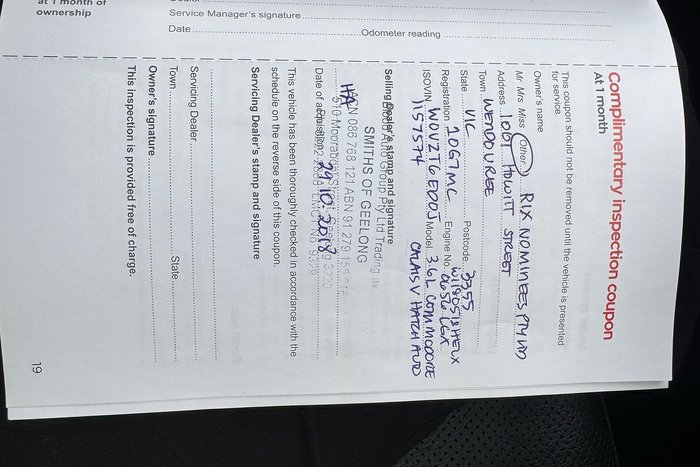 at 1 month of
ownership
Service Manager's signature
Date Odometer reading
Complimentary inspection coupon
At 1 month
This coupon should not be removed until the vehicle is presented
for service
Owner's name
Mr Mrs Miss Other RIX NOMINEES PTY LTD
Address HOWITT STREET
Town WENDOUREE
State VIC Postcode 3355
Registration 1OG7MC Engine No.
ISOVIN W0VZT6EDOJ Model 3.6L COMMODORE
1157574 CALAIS V HATCH AUTO
Selling Dealer's stamp and signature
Auto Group Pty Ltd Trading as
SMITHS OF GEELONG
ACN 086 768 121 ABN 91 279
510 Moorabool
Date of acquisition 29.10.2018
This vehicle has been thoroughly checked in accordance with the
schedule on the reverse side of this coupon.
Servicing Dealer's stamp and signature
Servicing Dealer
Town State
Owner's signature
This inspection is provided free of charge.
19